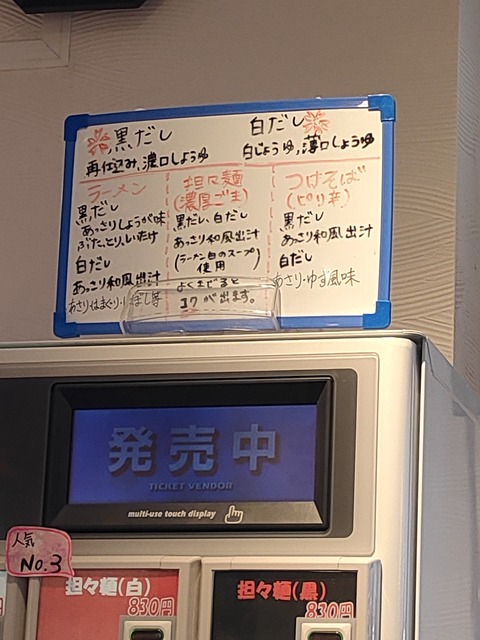 黒だし
再仕込み、濃口しょうゆ
白だし
白じょうゆ、薄口しょうゆ
ラーメン
黒だし
あっさりしょうが味
ぶた、とり、しいたけ
白だし
あっさり和風出汁
あさり・はまぐり・
担々麺
(濃厚ごま)
黒だし、白だし
あっさり和風出汁
(ラーメン白のスープ
使用)
よくまぜると
コクが出ます。
つけそば
(ピリ辛)
黒だし
あっさり和風出汁
白だし
あさり・ゆず風味
発売中
TICKET VENDOR
multi-use touch display
人気
No.3
担々麺(白)
830円
担々麺(黒)
830円